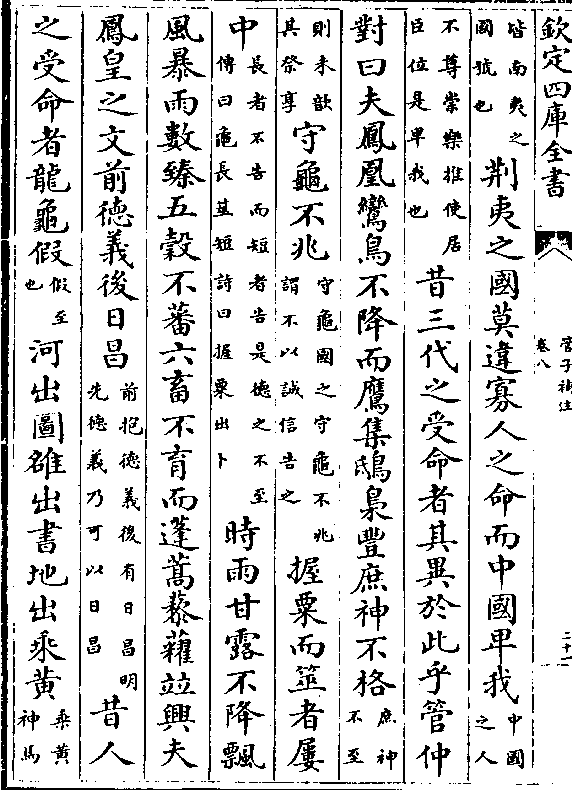 欽定四庫全書
管子補注
卷八
二十一
皆南夷之國號也荆夷之國莫違寡人之命而中國卑我中國之人
不尊崇樂推使居臣位是卑我也昔三代之受命者其異於此乎管仲
對曰夫鳳凰鸞鳥不降而鷹集鴟梟豐庶神不格庶神不至
則未歆其祭享守龜不兆守龜國之守龜不兆謂不以誠信告之握粟而筮者屢
中長者不告而短者告是徳之不至傳曰龜長筮短詩曰握粟出卜時雨甘露不降飄
風暴雨數臻五穀不蕃六畜不育而蓬蒿藜藋並興夫
鳳皇之文前徳義後日昌前抱徳義後有日昌明先徳義乃可以日昌昔人
之受命者龍龜假假至也河出圖雒出書地出乘黄乘黄神馬